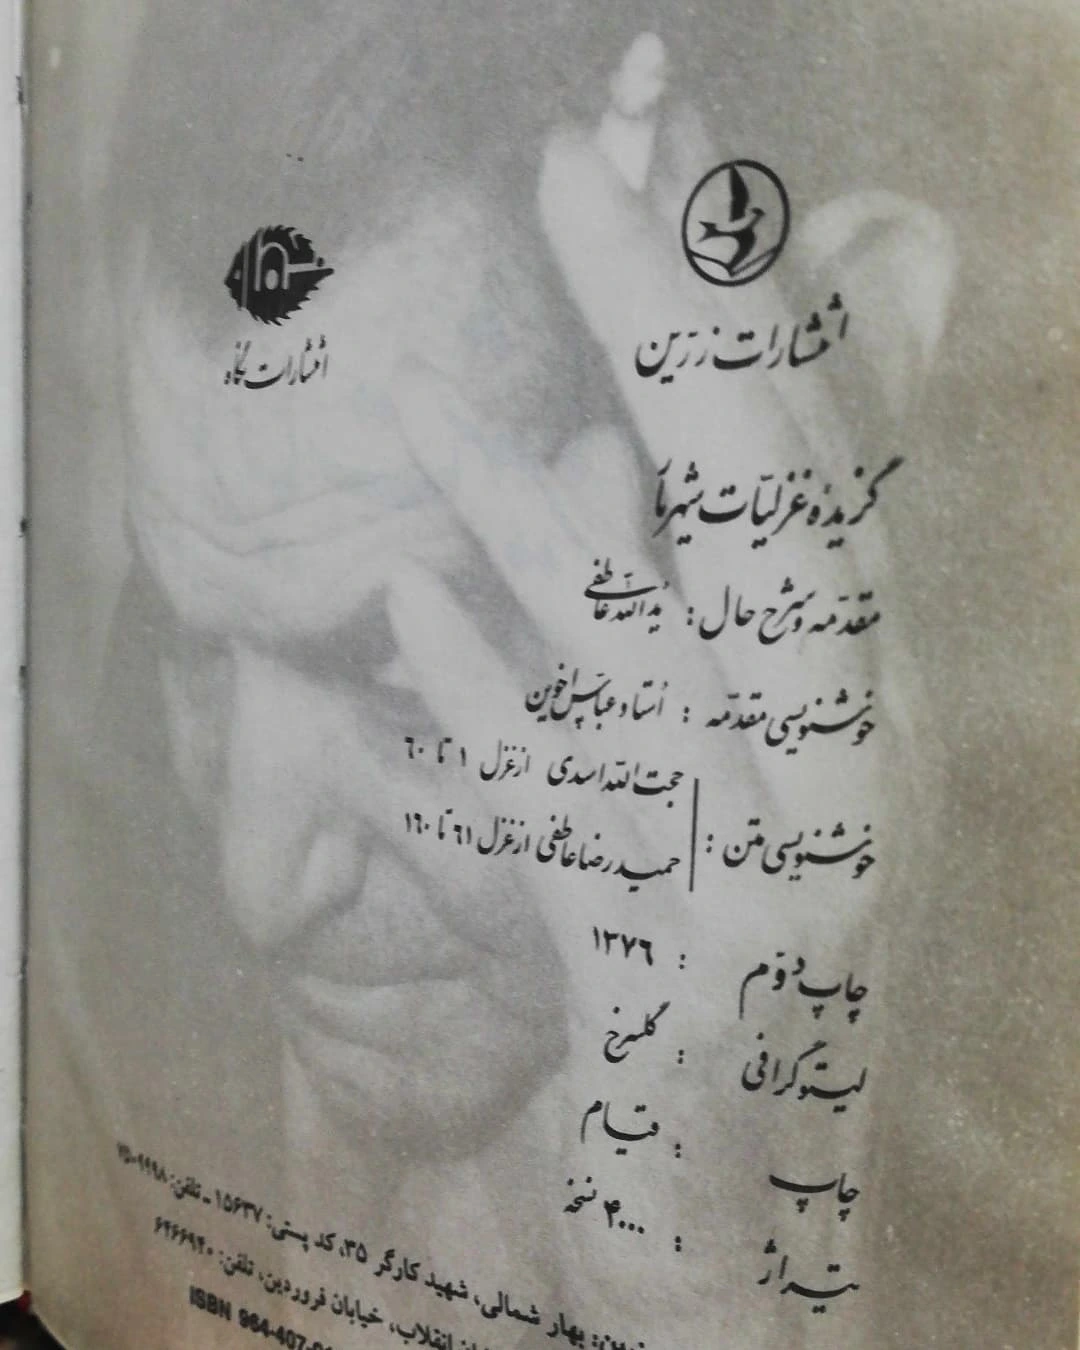 انتشارات زرین
انتشارات نگاه
گزیدهٔ غزلیّات شهریار
مقدّمه و شرح حال : یدالله عاطفی
خوشنویسی مقدّمه : اُستاد عباس اخوین
خوشنویسی متن : حجت الله اسدی از غزل ۱ تا ۶۰
حمید رضا عاطفی از غزل ۶۱ تا ۱۶۰
چاپ دوّم : ۱۳۷۶
لیتوگرافی : گلسرخ
چاپ : قیام
تیراژ : ۴۰۰۰ نسخه
بهار شمالی، شهید کارگر ۳۵، کد پستی: ۱۵۶۳۷ ـ تلفن: ۷۵۰۹۹۹۸
انقلاب، خیابان فروردین، تلفن: ۶۴۶۶۹۴۰
ISBN 964-407-